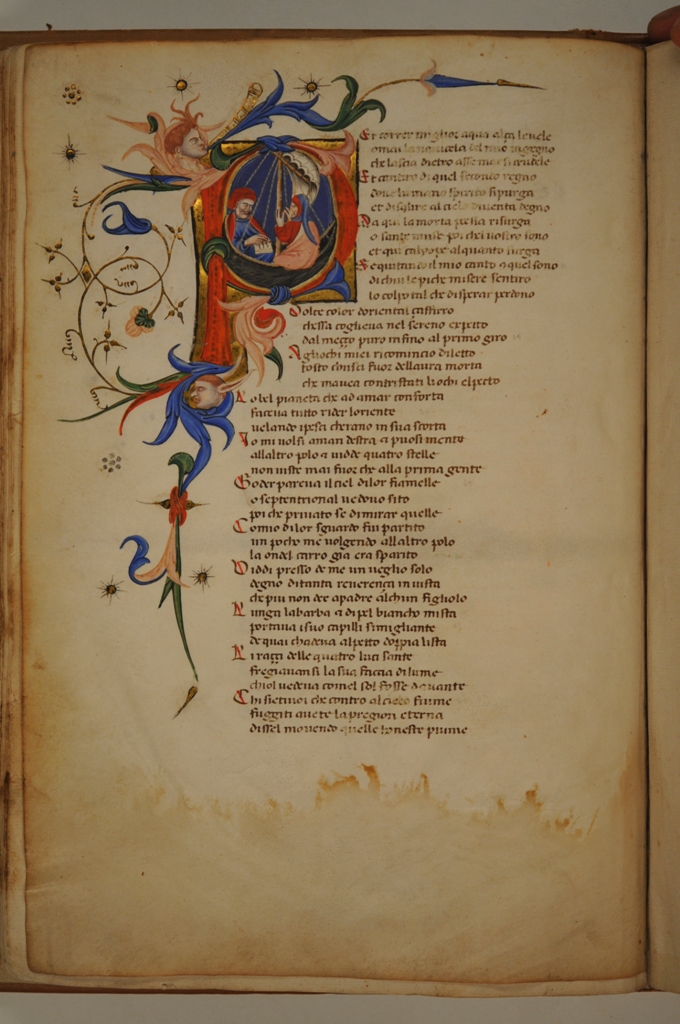 Er correr miglior aqua alça le uele
omai la nauicela del mio ingegno
che lascia dietro asse mar si crudele
Et cantaro di quel secondo regno
doue lumano spirito si purga
et di salire al cielo diuenta degno
Ma qui la morta poesia risurga
o sante muse poi che uostro sono
et qui caliope alquanto surga
Seguitando il mio canto con quel sono
di chui le piche misere sentiro
lo colpo tal che disperar perdono
Dolce color doriental çaffiro
che ssa coglieua nel sereno aspetto
dal meççо puro infino al primo giro
Agliochi miei ricomincio diletto
tosto consci fuor dellaura morta
che mauea contristati liochi el pecto
Lo bel pianeta che ad amar conforta
faceua tutto rider loriente
uelando ipesci cherano in sua scorta
Io mi uolsi aman destra & puosi mente
allaltro polo & uidde quatro stelle
non uiste mai fuor che alla prima gente
Goder pareua il ciel di lor fiamelle
o septentrional uedouo sito
poi che priuato se di mirar quelle
Comio di lor sguardo fui partito
un pocho me uolgendo allaltro polo
la ondel carro gia era sparito
Viddi presso de me un ueglio solo
degno di tanta reuerença in uista
che piu non dee a padre alchun figliolo
Lunga la barba & di pel biancho mista
portaua i suo capilli simigliante
de quai chadeua al petto doppia lista
Li raggi delle quatro luci sante
fregiauan si la sua faccia di lume
chiol uedeua comel sol fosse dauante
Chi sietiuoi che contro al cieco fiume
fuggiti auete la pregion eterna
dissel mouendo quelle honeste piume